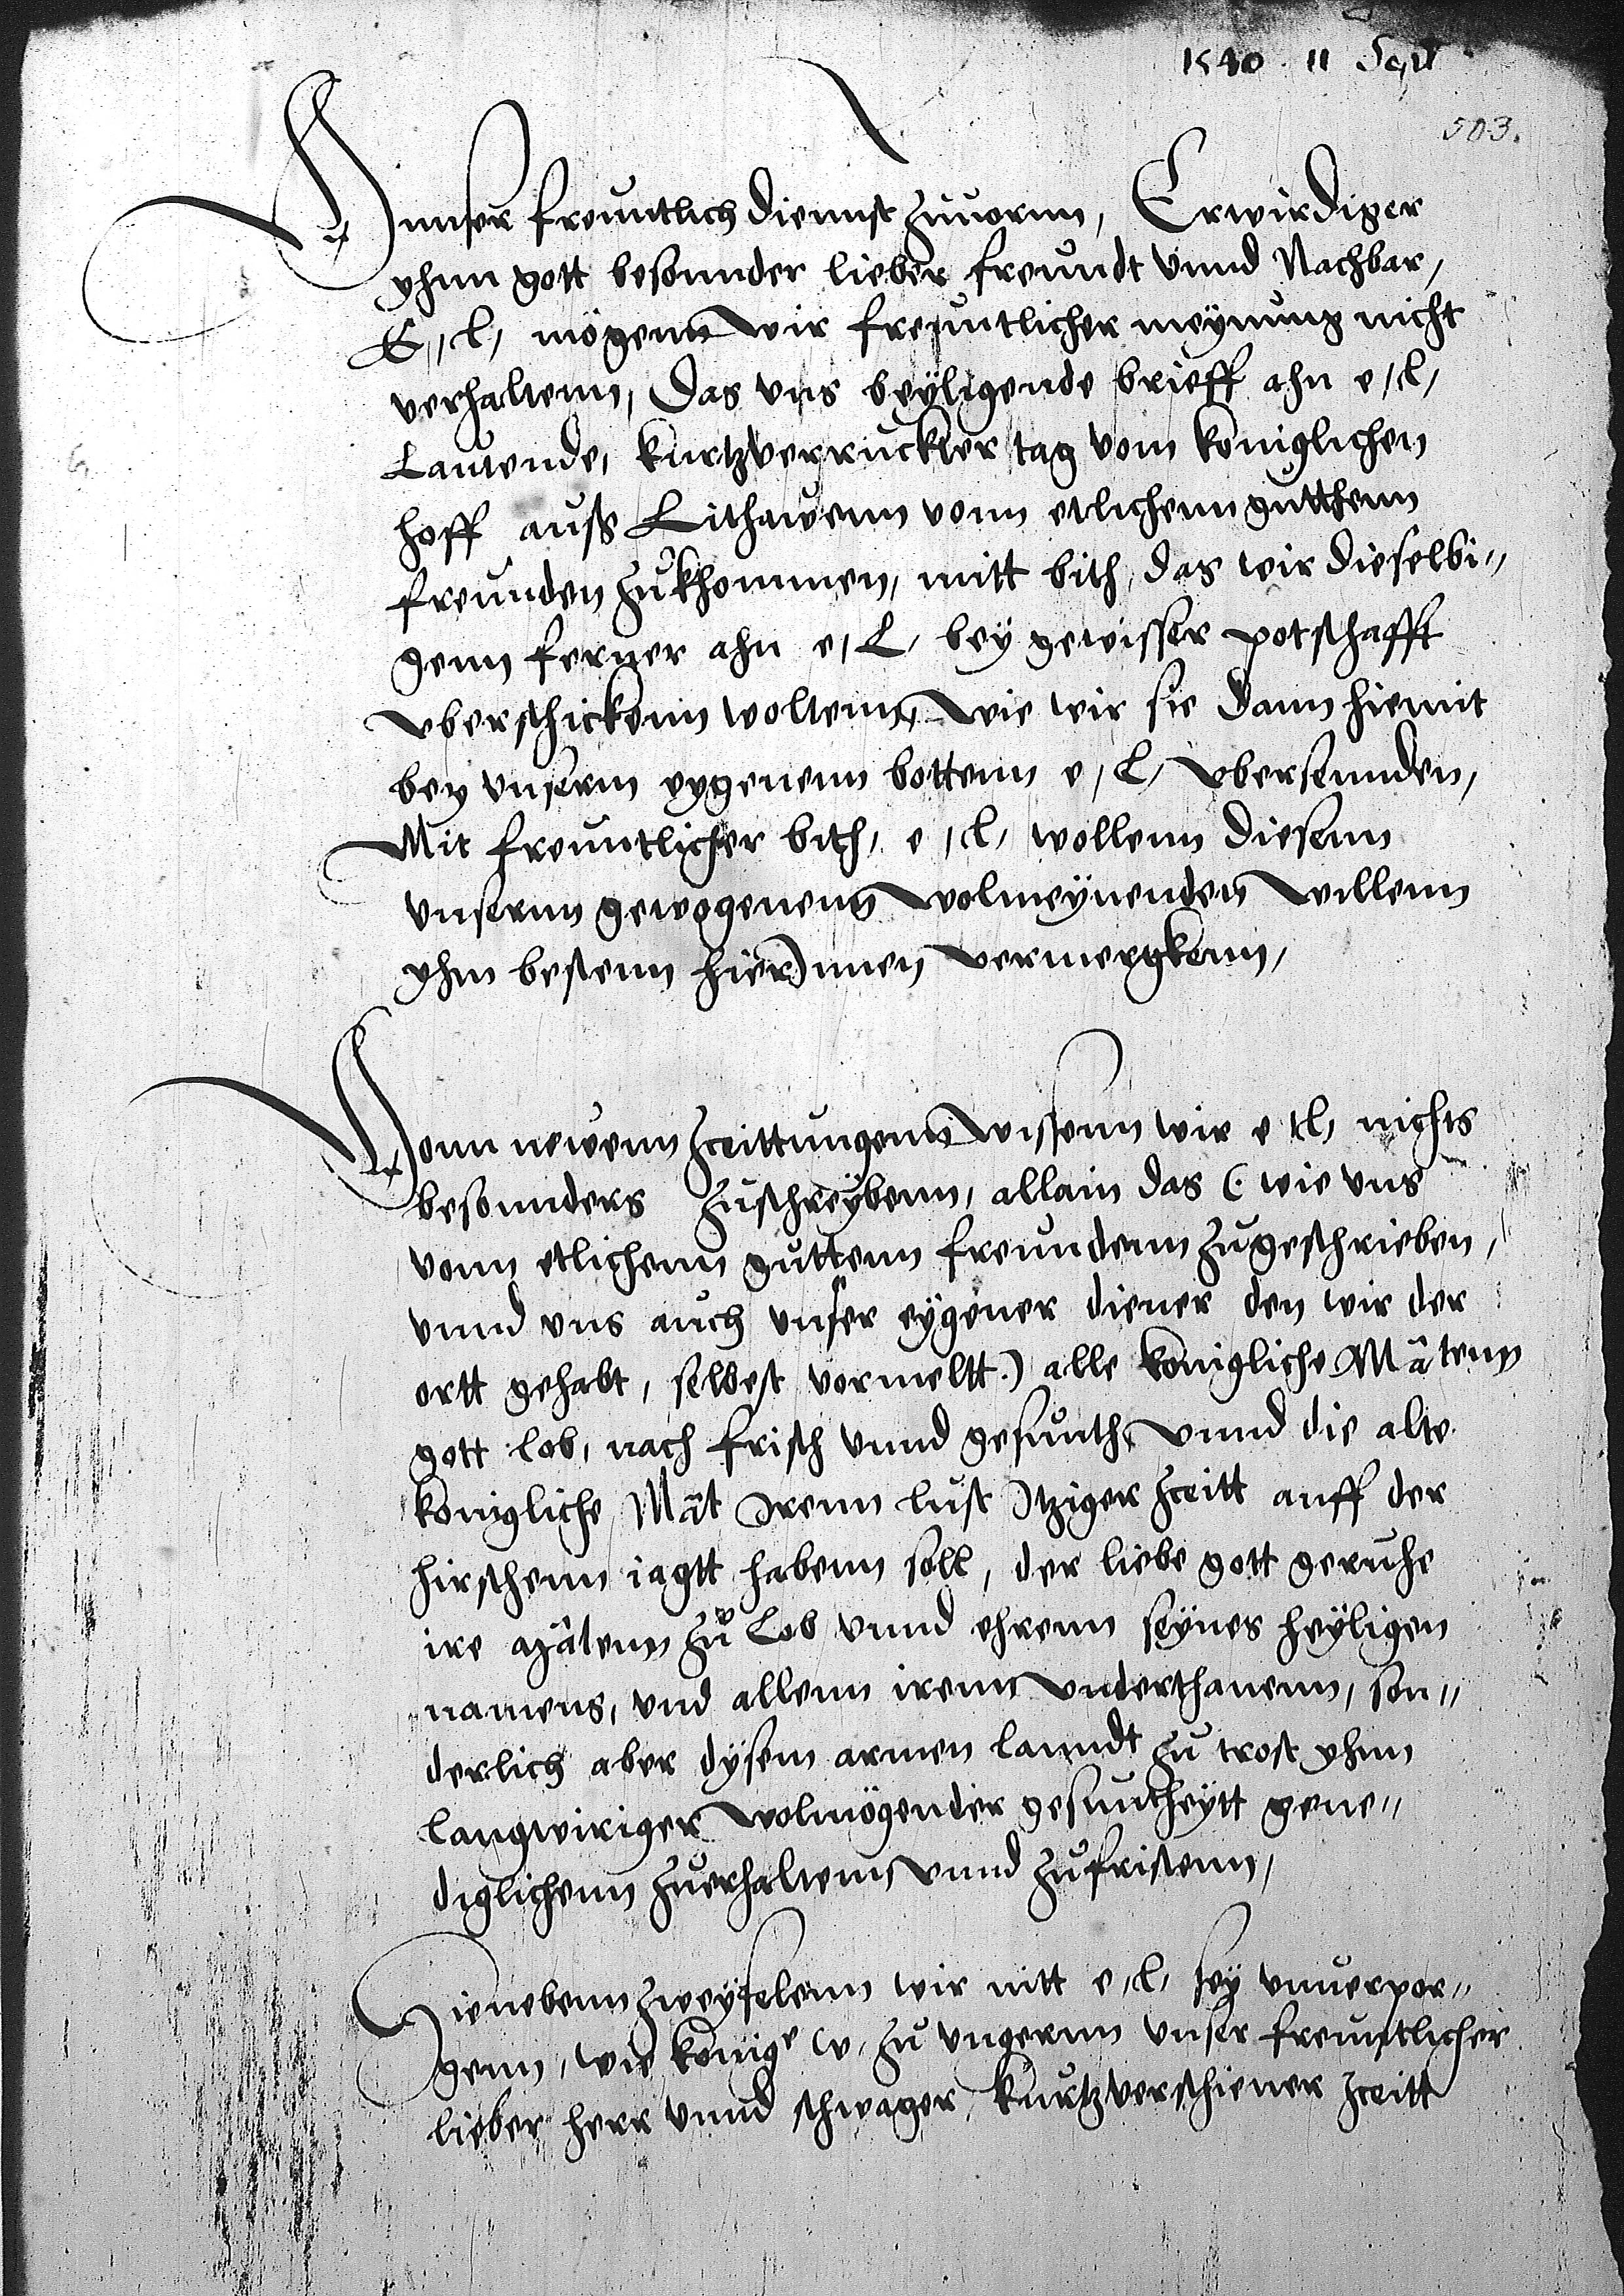 1540 · 11 Sept
503.
Vnnser freuntlich diennst zuuornn, Erwirdiger
yhnn gott besonnder lieber freundt vnnd Nachbar,
E, l, mögenn wir freuntlicher meynung nicht
verhaltenn, Das vns beyligende brieff ahn e, l,
Lautende, kurtzverruckter tag vom königlichen
hoff auß Lithawenn vonn etlichenn gutthenn
freunden zukhommen, mitt bith, das wir dieselbi„
genn ferner ahn e, L, bey gewisser potschafft
vberschickenn woltenn, wie wir sie dann hiemit
bey vnserm eygenenn bottenn e, L, vbersennden,
Mit freuntlicher bith, e, l, wollenn diesenn
vnsernn gewogenenn wolmeynenden willenn
yhm bestenn hierJnnen vermergkenn,
Vonn newenn zceittungenn wissenn wir e, l, nichts
besonnders zuschreybenn, allain das (: wie vns
vonn etlichenn guttenn freundenn zugeschrieben,
vnnd vns auch vnser eygener diener den wir der
ortt gehabt, selbest vormeltt.) alle königliche Mâtenn
gott lob, nach frisch vnnd gesunth, vnnd die alte
königliche Mât Jrenn lust Jtziger zceitt auff der
hirschenn iagtt habenn soll, der liebe gott geruhe
ire Mâtenn zu Lob vnnd ehrenn seynes heyligen
namens, vnd allenn irenn vnderthanenn, son„
derlich aber dysem armen lanndt zu trost yhnn
langwiriger wolmögender gesuntheytt gene„
diglichenn zuerhaltenn vnnd zufristenn,
Hienebenn zweyfelenn wir nitt e, l, sey vnuerpor„
genn, wie könige w, zu vngernn vnser freuntlicher
lieber herr vnnd schwager, kurtzverschiener zceitt